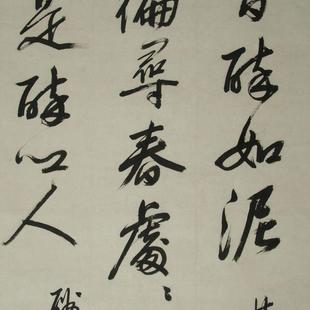 日醉如泥
偏尋春處々
是醉心人